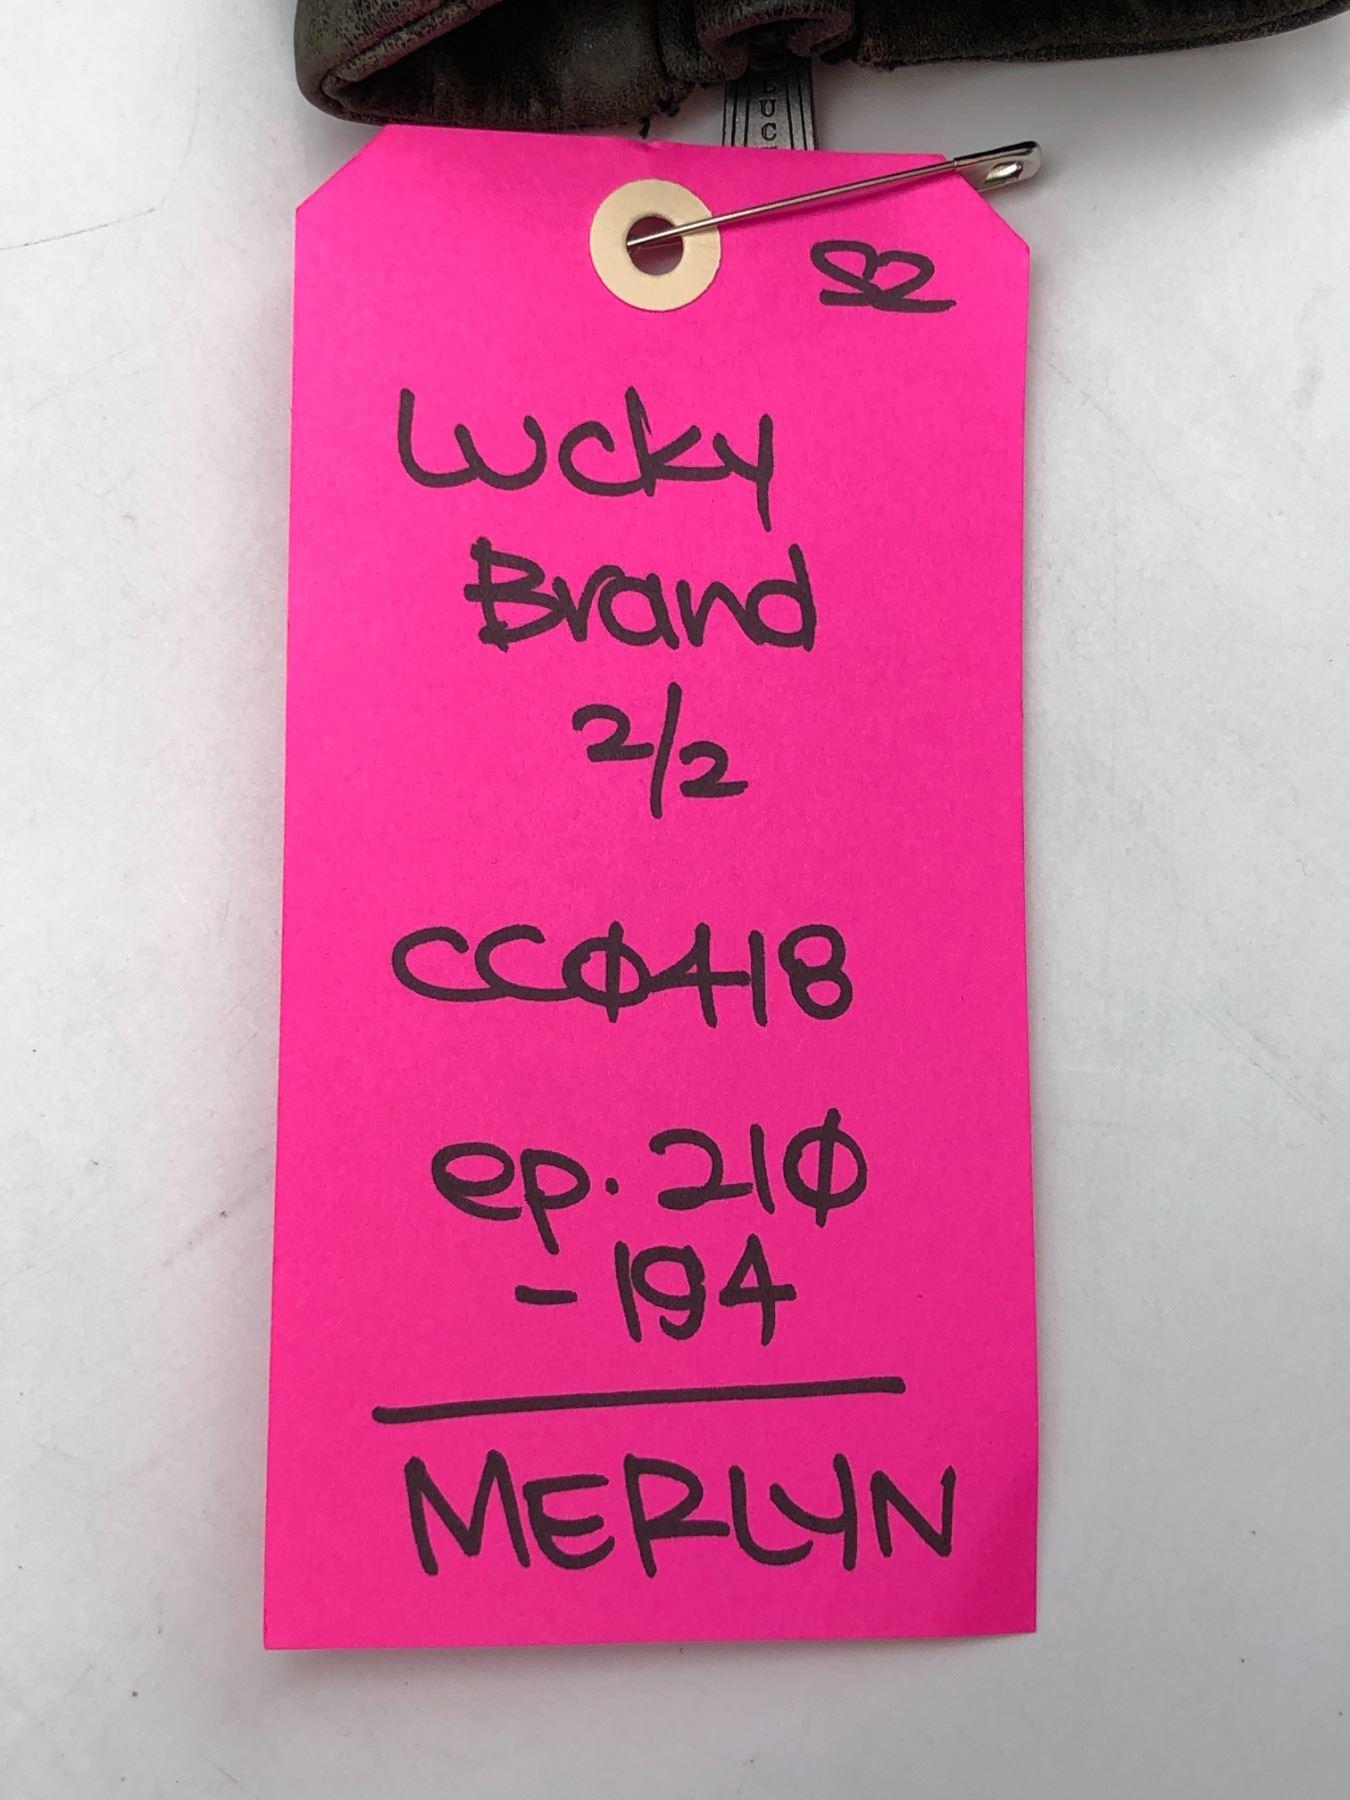 LUC
S2
Lucky
Brand
2/2
CC0418
ep. 210
- 194
MERLYN